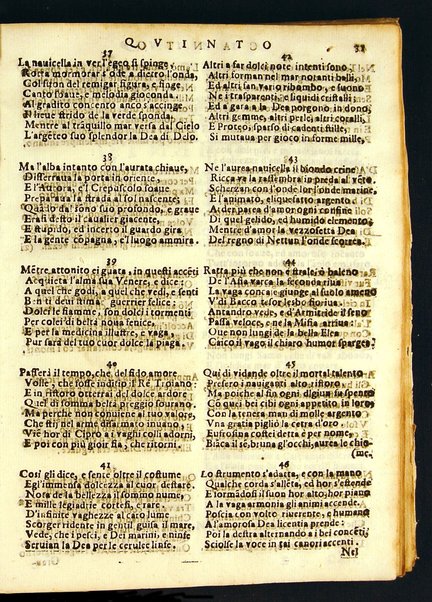 QVINTO
37
La nauicella in ver l'egeo si spinge,
Rotta mormorar s'ode a dietro l'onda,
Col sistron del remigar figura, e finge
Canto soaue, e melodia gioconda.
Al gradito concento ancos accinge
N lieue strido de la verde sponda,
Mentre al trãquillo mar versa dal Cielo
L'argẽteo suo splendor la Dea di Delo.
38
Ma l'alba intanto con l'aurata chiaue,
Disserraua la porta in oriente,
E l'Aurora, e l Crepuscolo soaue
Preparaua la strada al sol nascente;
Quãdo da'l sono suo profondo, e graue
Eran desto il caualier giacente.
E stupido, ed incerto il guardo gira
E la gente cõpagna, e'l luogo ammira.
39
Mẽtre attonito ei guata, in questi accẽti
Acquieta l'alma sua Venere, e dice:
A quel che godi, a quel che vedi, e senti
Ben ti deui stima guerrier felice;
Dolci le fiamme, son dolci i tormenti
Per colei di bella noua fenice,
E per la medicina illustre, e vaga,
Pur sarà del tuo cuor dolce la piaga.
40
Passerà il tempo, che del fido amore
Volse, che fosse indisio il Rè Troiano
E in ristoro otterrai del dolce ardore
Quel di somma beltà preggio sourano.
Ma perche non conuiene al tuo valore,
Che stij nel arme disarmato inuano
Vie hor di Cipro a i vaghi colli adorni,
E poi con più gioir fia, che ritorni.
41
Così gli dice, e sente oltre il costume
Egl'immensa dolcezza al cuor destare.
Nota de la bellezza il sommo nume,
E mille legiadrie cortesi, e rare.
D'infinite vaghezze al caro lume
Scorger ridente in gentil guisa il mare,
Vede, che i pesci, e Dei marini, e ninfe
Seruian la Dea per le cerulee linfe.
42
Altri a far dolci note intenti sono
Altri forman nel mar notanti balli,
Ed altri fan vario ribambo, e suono
Ne i trasparenti, e liquidi cristalli
Ed altri a gara a la Dea porgono in dono,
Altri gemme, altri perle, altri coralli,
E Proteo, sparso di cadenti stille,
Si mutaua per gioco in forme mille,
43
Ne l'aurea nauicella il biondo crine
Ricca ve la rassembra in preda al vẽto.
Scherzan con l'onde lor l'onde marine,
E l'animato, eliquefatto argento
Ad ber parea d'amor ogni confine
Di quel gelido, ed humido elemento,
Mentre d'amor la vezzosetta Dea
Del regno di Nettun l'onde scorrea.
44
Ratta più che non è strale, ò baleno
De l'Asia varca la seconda riua
La vaga conca e giunge al suolo ameno
V'di Bacco tesor lesbo fioriua,
Antandro vede, e d'Armiteide il seno
Passa veloce, e ne la Misia arriua;
Oue non lungi de la bella Eton
Caico il vago il chiaro humor sparge.
45
Qui di vidande oltre il mortal talento
Presero i nauiganti alto ristoro
Ma poiche al fin ogni digiun fu spento
Cõ quei bei cibi ogni appetito in loro;
Con la tenera man di molle argento
Vna gratia pigliò la cetra d'oro
Eufrosina costei detta e per nome,
Bianca il sè, bruna gl'occhi, aurea le chio
(me.
46
Lo strumento s'adatta, e con la mano
Qualche corda s'allẽta, ed hor s'estende
E formadosi il suon hor alto, hor piano
A la vaga armonia gli animi accende.
Poscia con volto riuerente, e humano
A l'amorosa Dea licentia prende:
Poi la destra alternando a i bei concẽti,
Sciosse la voce in sai canori accenti.
Nel